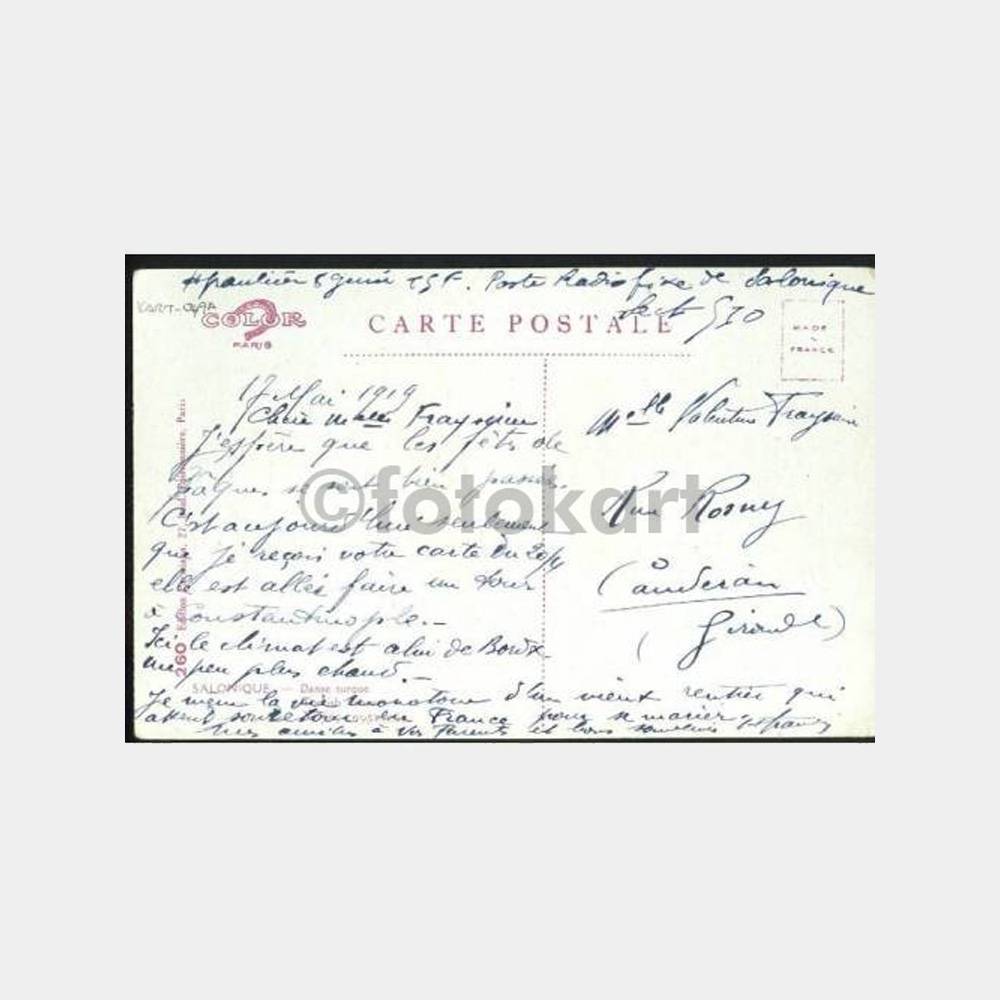 8 génie TSF. Poste Radio fixe de Salonique
Sect 510
KART-049A
COLOR
PARIS
CARTE POSTALE
MADE
FRANCE
17 Mai 1919
Chère Melle
J'espère que les fêtes de
Pâques se sont bien passées.
C'est aujourd'hui seulement
que je reçois votre carte du 20/4
elle est allée faire un tour
à Constantinople.-
Ici le climat est celui de Bordx
un peu plus chaud.-
Je mène la vie monotone d'un vieux rentier qui
attend son retour en France pour se marier.
Mes amitiés à vos Parents et bons souvenirs
Melle Valentine
Rue Rosny
Caudéran
(Gironde)
260
Paris
SALONIQUE — Danse turque
©fotokart